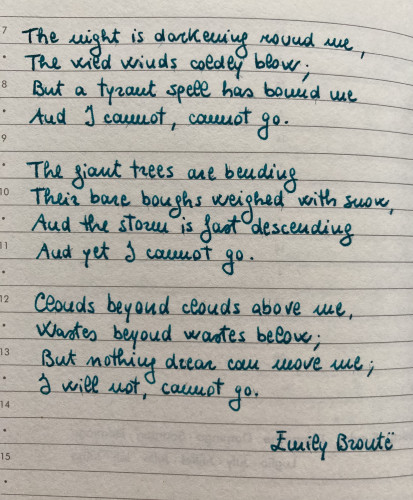 7
The night is darkening round me,
The wild winds coldly blow;
8
But a tyrant spell has bound me
And I cannot, cannot go.
9
The giant trees are bending
10
Their bare boughs weighed with snow,
And the storm is fast descending
11
And yet I cannot go.
12
Clouds beyond clouds above me,
Wastes beyond wastes below;
13
But nothing drear can move me;
I will not, cannot go.
14
Emily Brontë
15